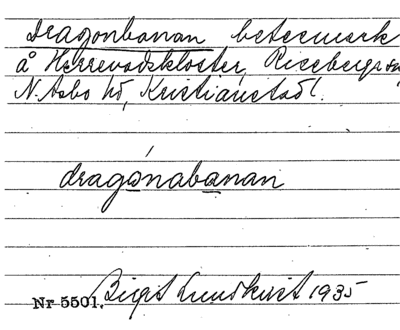 Dragonbanan betesmark
å Herrevadskloster, Riseberga sn
N. Åsbo hd, Kristianstad l.
dragónabanan
Nr 5501. Birgit Lundkvist 1935